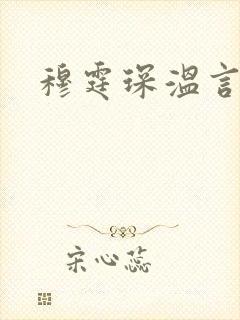 穆霆琛温言
宋心蕊